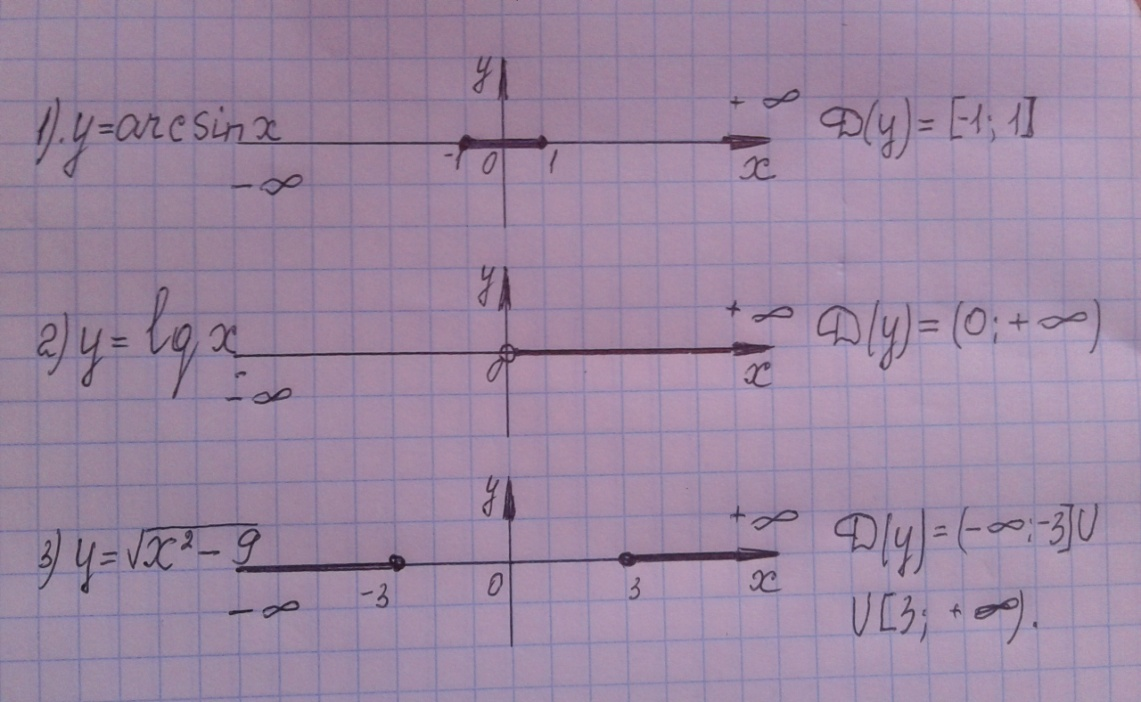 1). y=arcsinx y -1 0 1 + ∞ x D(y)= [-1; 1]
-∞
2) y= lg x y 0 + ∞ x D(y)= (0; + ∞)
-∞
3) y=√x²-9 y -3 0 3 +∞ x D(y)= (-∞;-3]U
-∞ U[3; + ∞).